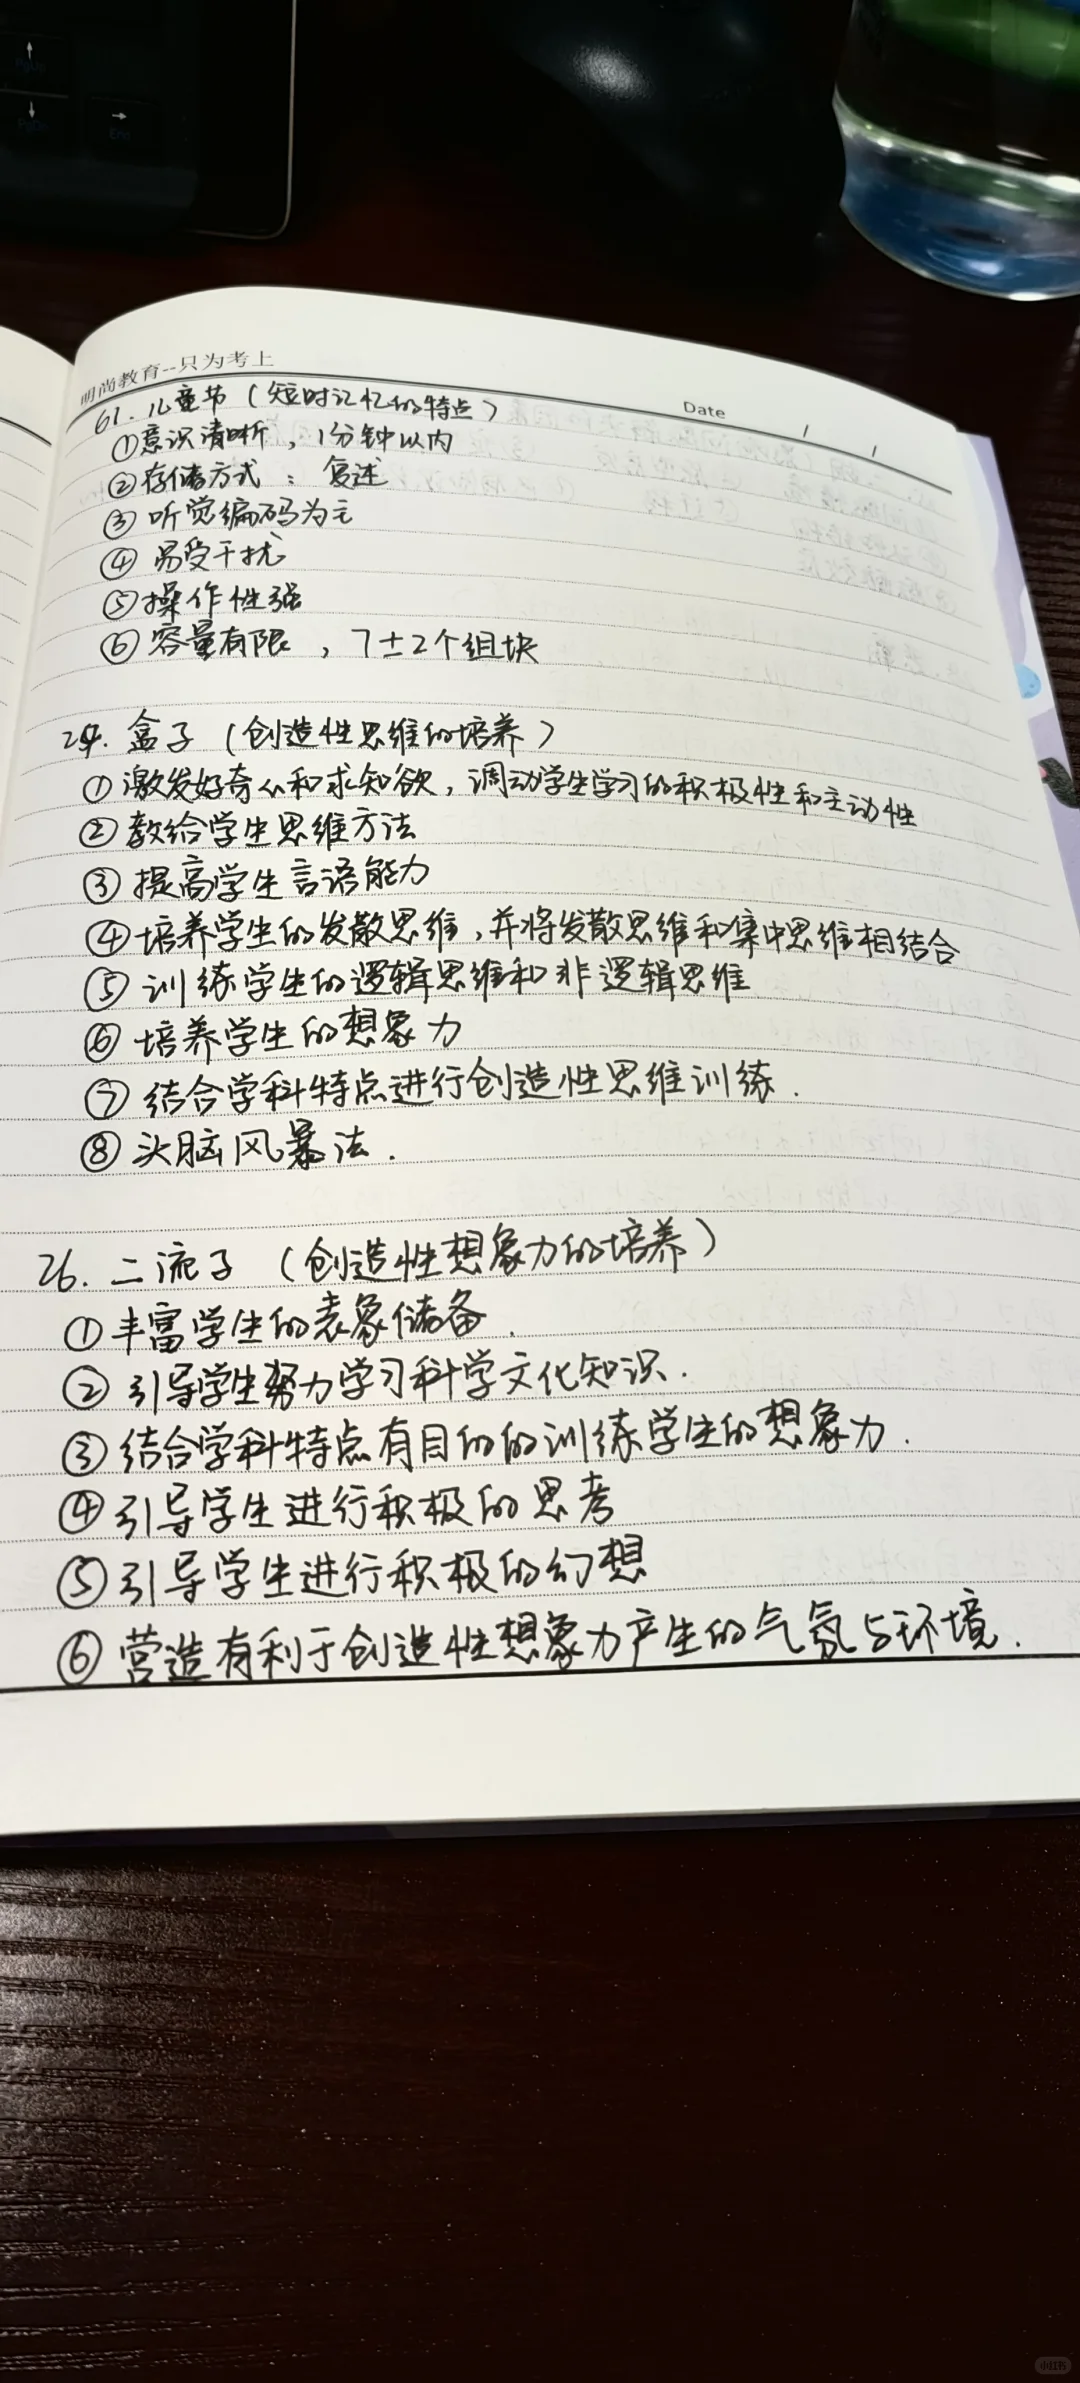 明尚教育--只为考上
Date / /
61. 儿童节（短时记忆的特点）
①意识清晰，1分钟以内
②存储方式：复述
③听觉编码为主
④易受干扰
⑤操作性强
⑥容量有限，7±2个组块
24. 盒子（创造性思维的培养）
①激发好奇心和求知欲，调动学生学习的积极性和主动性
②教给学生思维方法
③提高学生言语能力
④培养学生的发散思维，并将发散思维和集中思维相结合
⑤训练学生的逻辑思维和非逻辑思维
⑥培养学生的想象力
⑦结合学科特点进行创造性思维训练.
⑧头脑风暴法.
26. 二流子（创造性想象力的培养）
①丰富学生的表象储备.
②引导学生努力学习科学文化知识.
③结合学科特点有目的的训练学生的想象力.
④引导学生进行积极的思考
⑤引导学生进行积极的幻想
⑥营造有利于创造性想象力产生的气氛与环境.
小红书